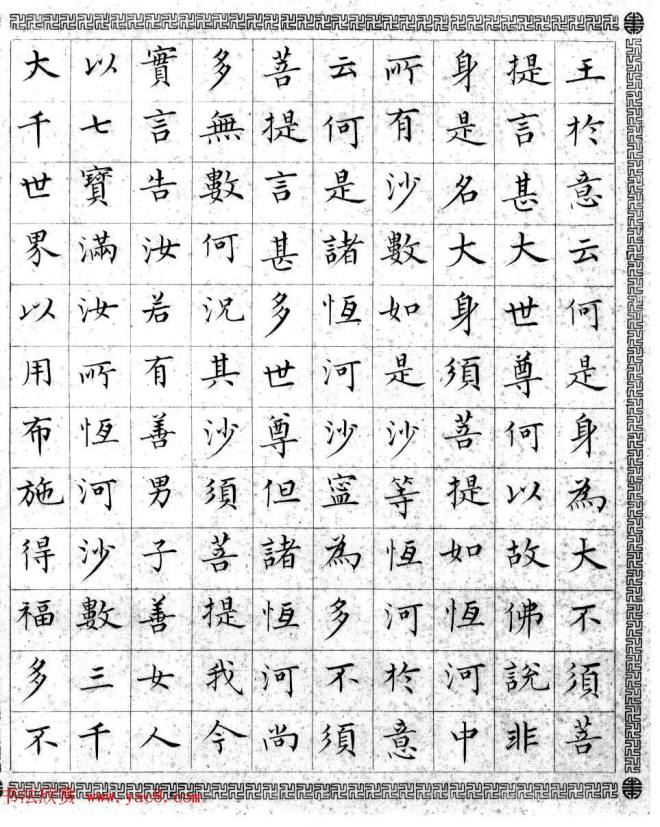 王於意云何是身為大不須菩
提言甚大世尊何以故佛說非
身是名大身須菩提如恆河中
所有沙數如是沙等恆河於意
云何是諸恆河沙寍為多不須
菩提言甚多世尊但諸恆河尚
多無數何況其沙須菩提我今
實言告汝若有善男子善女人
以七寶滿汝所恆河沙數三千
大千世界以用布施得福多不
书法欣赏 www.yac8.com